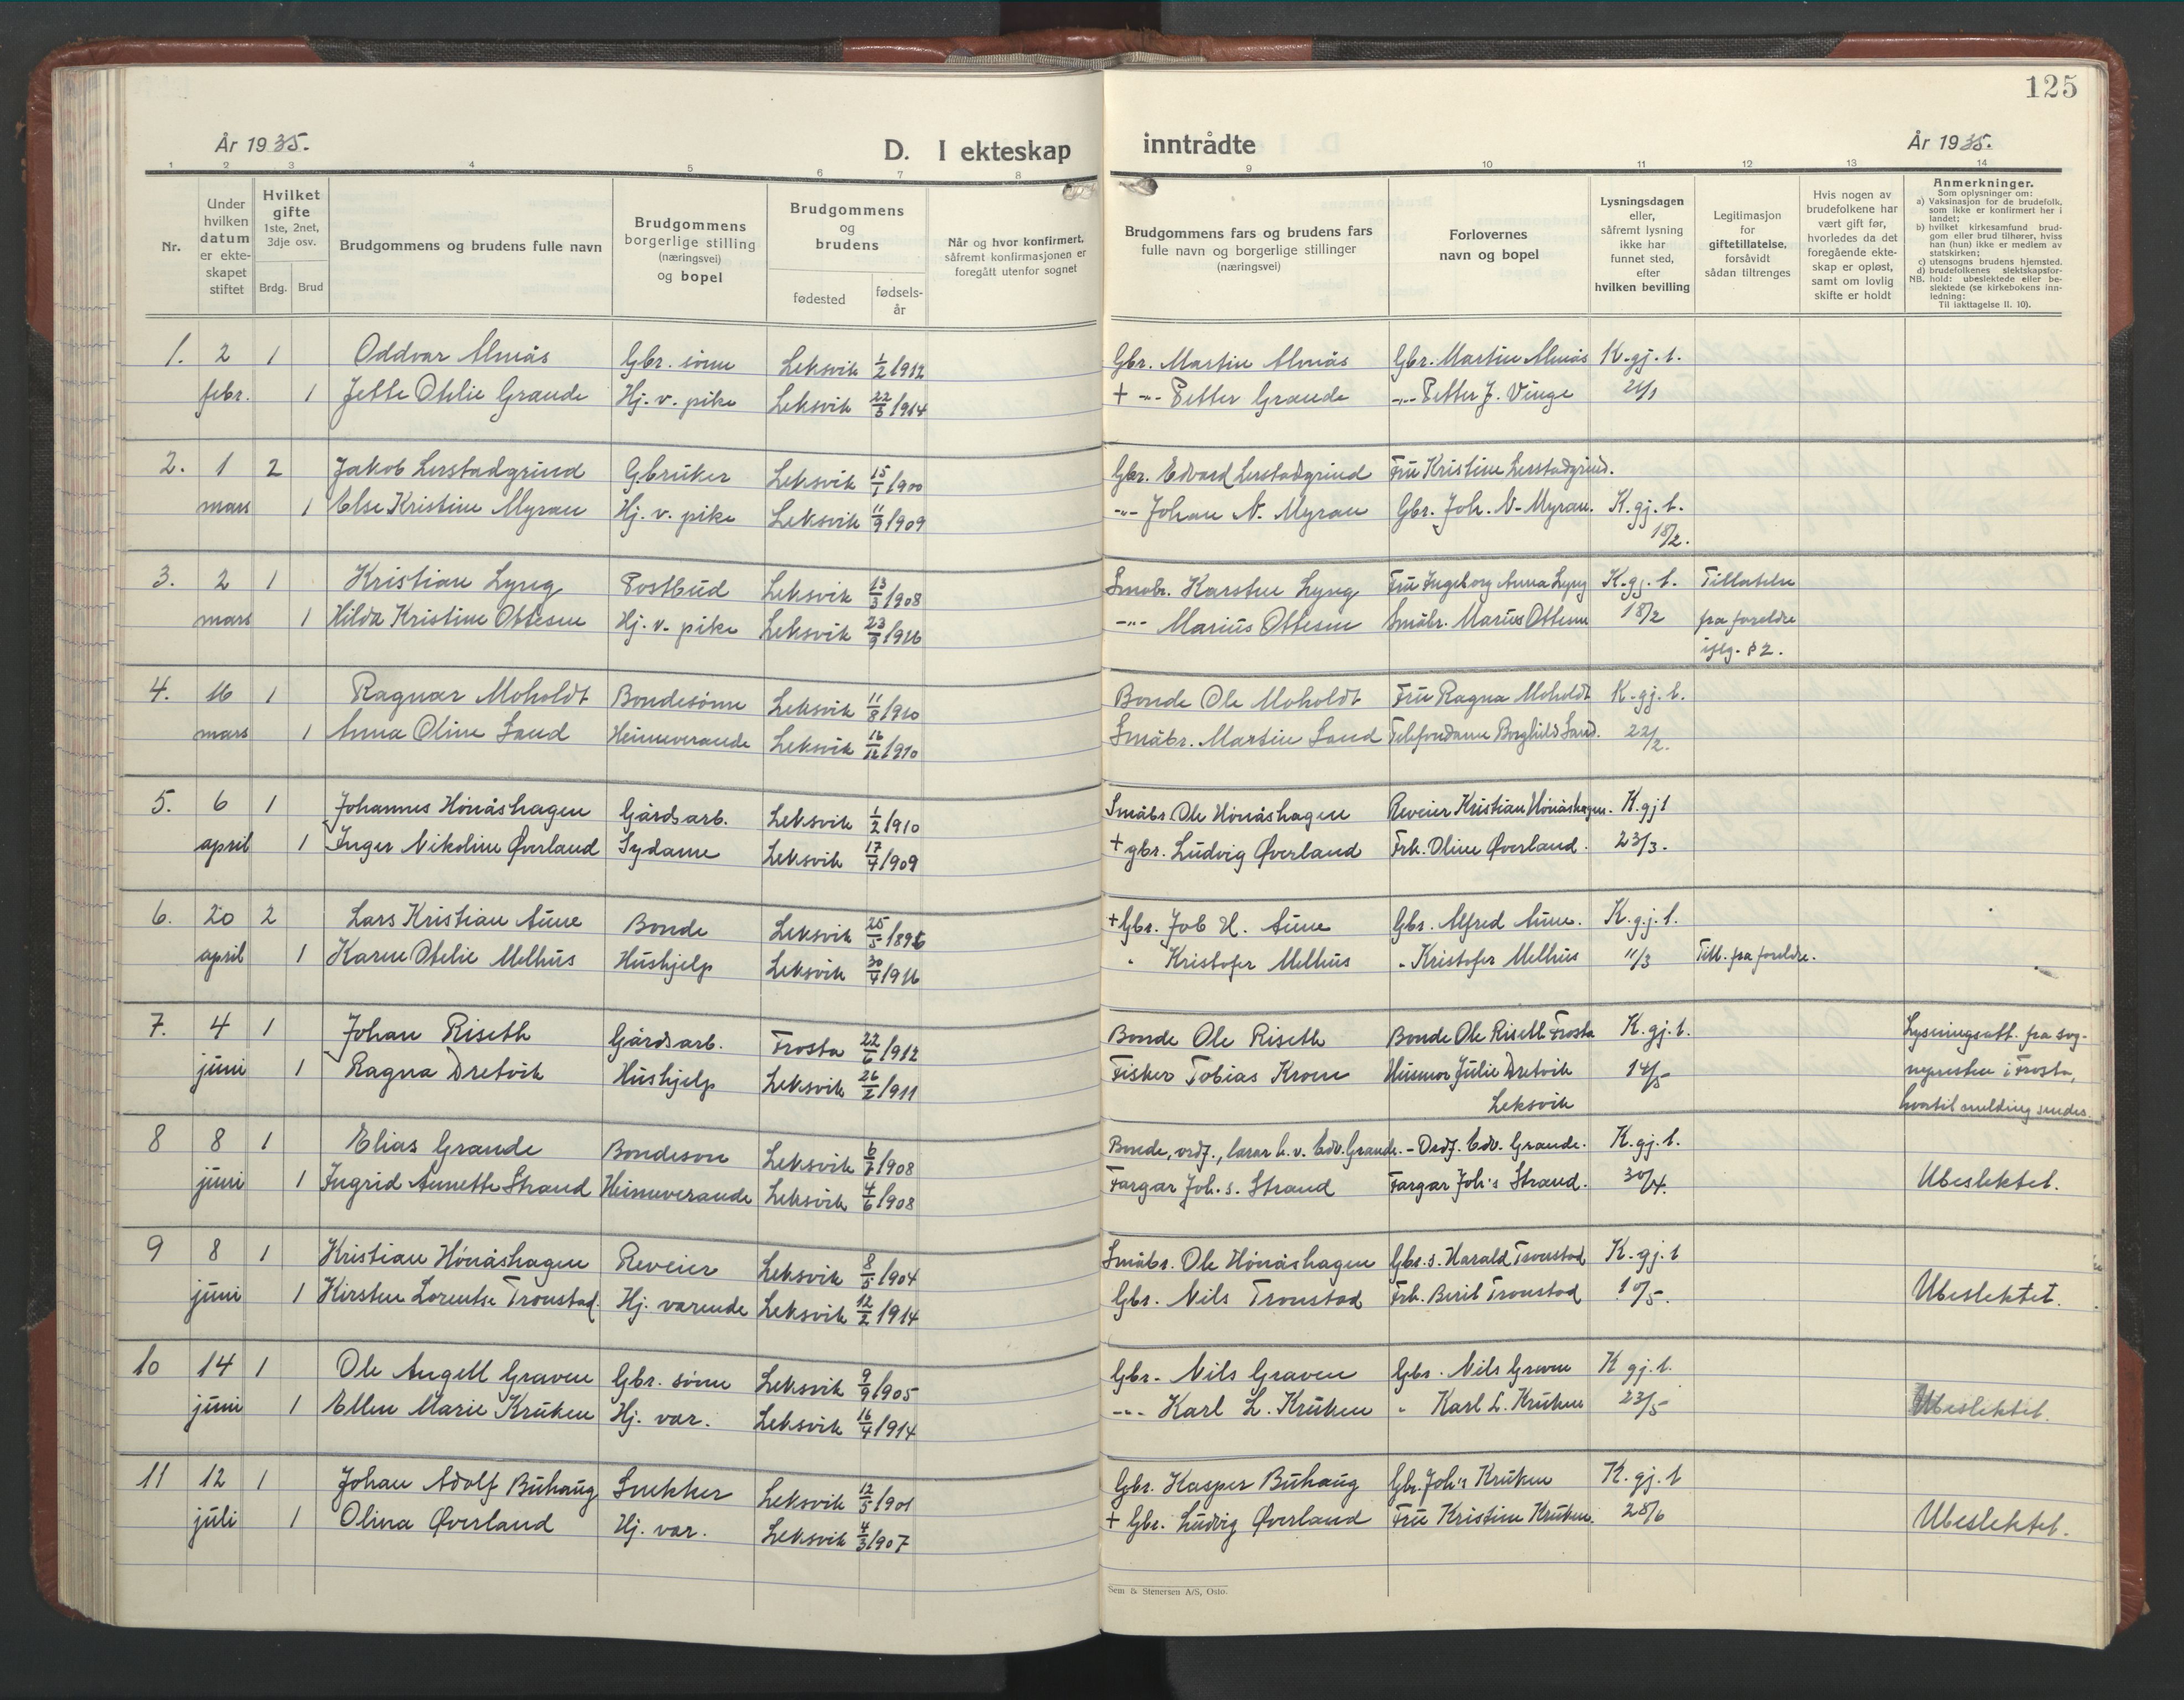 125
År 1935.
D. I ekteskap
inntrådte
År 1935.
1 2 3 4 5 6 7 8 9 10 11 12 13 14
Nr.
Under hvilken datum er ekte-skapet stiftet
Hvilket gifte 1ste, 2net, 3dje osv.
Brdg. Brud
Brudgommens og brudens fulle navn
Brudgommens borgerlige stilling (næringsvei) og bopel
Brudgommens og brudens
fødested
fødsels-år
Når og hvor konfirmert, såfremt konfirmasjonen er foregått utenfor sognet
Brudgommens fars og brudens fars fulle navn og borgerlige stillinger (næringsvei)
Forlovernes navn og bopel
Lysningsdagen eller, såfremt lysning ikke har funnet sted, efter hvilken bevilling
Legitimasjon for giftetillatelse, forsåvidt sådan tiltrenges
Hvis nogen av brudefolkene har vært gift før, hvorledes da det foregående ekte-skap er opløst, samt om lovlig skifte er holdt
Anmerkninger.
Som oplysninger om:
a) Vaksinasjon for de brudefolk, som ikke er konfirmert her i landet;
b) hvilket kirkesamfund brud-gom eller brud tilhører, hviss han (hun) ikke er medlem av statskirken;
c) utensogns brudens hjemsted.
d) brudefolkenes slektskapsfor-hold: ubeslektede eller be-slektede (se kirkebokens inn-ledning:
NB.
Til iakttagelse II. 10).
1. 2 1 Oddvar Almås Gbr. sönn Leksvik 1/2 1912 Gbr. Martin Almås Gbr. Martin Almås K. gj. l.
febr. 1 Jette Otelie Grande Hj. v. pike Leksvik 22/3 1914 + -"- Petter Grande -"- Petter J. Vinge 21/1
2. 1 2 Jakob Lerstadgrind Gbruker Leksvik 15/1 1900 Gbr. Edvard Lerstadgrind Fru Kristine Lerstadgrind.
mars 1 Else Kristine Myran Hj. v. pike Leksvik 11/9 1909 -"- Johan N. Myran Gbr. Joh. N. Myran. K. gj. l.
18/2.
3. 2 1 Kristian Lyng Postbud Leksvik 13/3 1908 Småbr. Karsten Lyng Fru Ingeborg Anna Lyng K. gj. l. Tillatelse
mars 1 Hilda Kristine Ottesen Hj. v. pike Leksvik 23/3 1916 -"- Marius Ottesen Småbr. Marius Ottesen 18/2 fra foreldre
iflg. § 2.
4. 16 1 Ragnar Moholdt Bondesönn Leksvik 11/8 1910 Bonde Ole Moholdt Fru Ragna Moholdt K. gj. l.
mars 1 Anna Oline Sand Heimeverande Leksvik 16/12 1910 Småbr. Martin Sand Telefondame Borghild Sand. 22/2.
5. 6 1 Johannes Hönåshagen Gårdsarb. Leksvik 1/2 1910 Småbr. Ole Hönåshagen Reveier Kristian Hönåshagen. K. gj l
april 1 Inger Nikoline Øverland Sydame Leksvik 17/4 1909 + gbr. Ludvig Øverland Frk. Oline Øverland. 23/3.
6. 20 2 Lars Kristian Aune Bonde Leksvik 25/5 1896 + Gbr. Job H. Aune Gbr. Alfred Aune. K. gj. l.
april 1 Karen Otelie Melhus Hushjelp Leksvik 30/4 1916 " Kristofer Melhus " Kristofer Melhus 11/3 Till. fra foreldre.
7. 4 1 Johan Riseth Gårdsarb. Frosta 22/6 1912 Bonde Ole Riseth Bonde Ole Riseth Frosta K. gj. l. Lysningsatt. fra sog-
juni 1 Ragna Dretvik Hushjelp Leksvik 26/2 1911 Fisker Tobias Kroen Husmor Julie Dretvik 14/5 nepresten i Frosta,
Leksvik hvortil melding sendes.
8 8 1 Elias Grande Bondeson Leksvik 6/7 1908 Bonde, ordf., lærar h. v. Edv. Grande. - Ordf. Edv. Grande. K. gj. l.
juni 1 Ingrid Annette Strand Heimeverande Leksvik 4/6 1908 Fargar Joh. s. Strand Fargar Joh. s Strand. 30/4. Ubeslektet.
9 8 1 Kristian Hönåshagen Reveier Leksvik 8/5 1904 Småbr. Ole Hönåshagen Gbr. s. Harald Tronstad K. gj. l
juni 1 Kirsten Lorentse Tronstad. Hj. varende Leksvik 12/2 1914 Gbr. Nils Tronstad Frk. Berit Tronstad 10/5. Ubeslektet.
10 14 1 Ole Angell Graven Gbr. sönn Leksvik 9/9 1905 Gbr. Nils Graven Gbr. Nils Graven K gj. l.
juni 1 Ellen Marie Kruken Hj. var. Leksvik 16/4 1914 -"- Karl L. Kruken " Karl L. Kruken 23/5 Ubeslektet.
11 12 1 Johan Adolf Buhaug Snekker Leksvik 12/5 1901 Gbr. Kasper Buhaug Gbr. Joh. s Kruken K. gj. l
juli 1 Olina Øverland Hj. var. Leksvik 4/3 1907 + Gbr. Ludvig Øverland Fru Kristine Kruken. 28/6 Ubeslektet.
Sem & Stenersen A/S, Oslo.